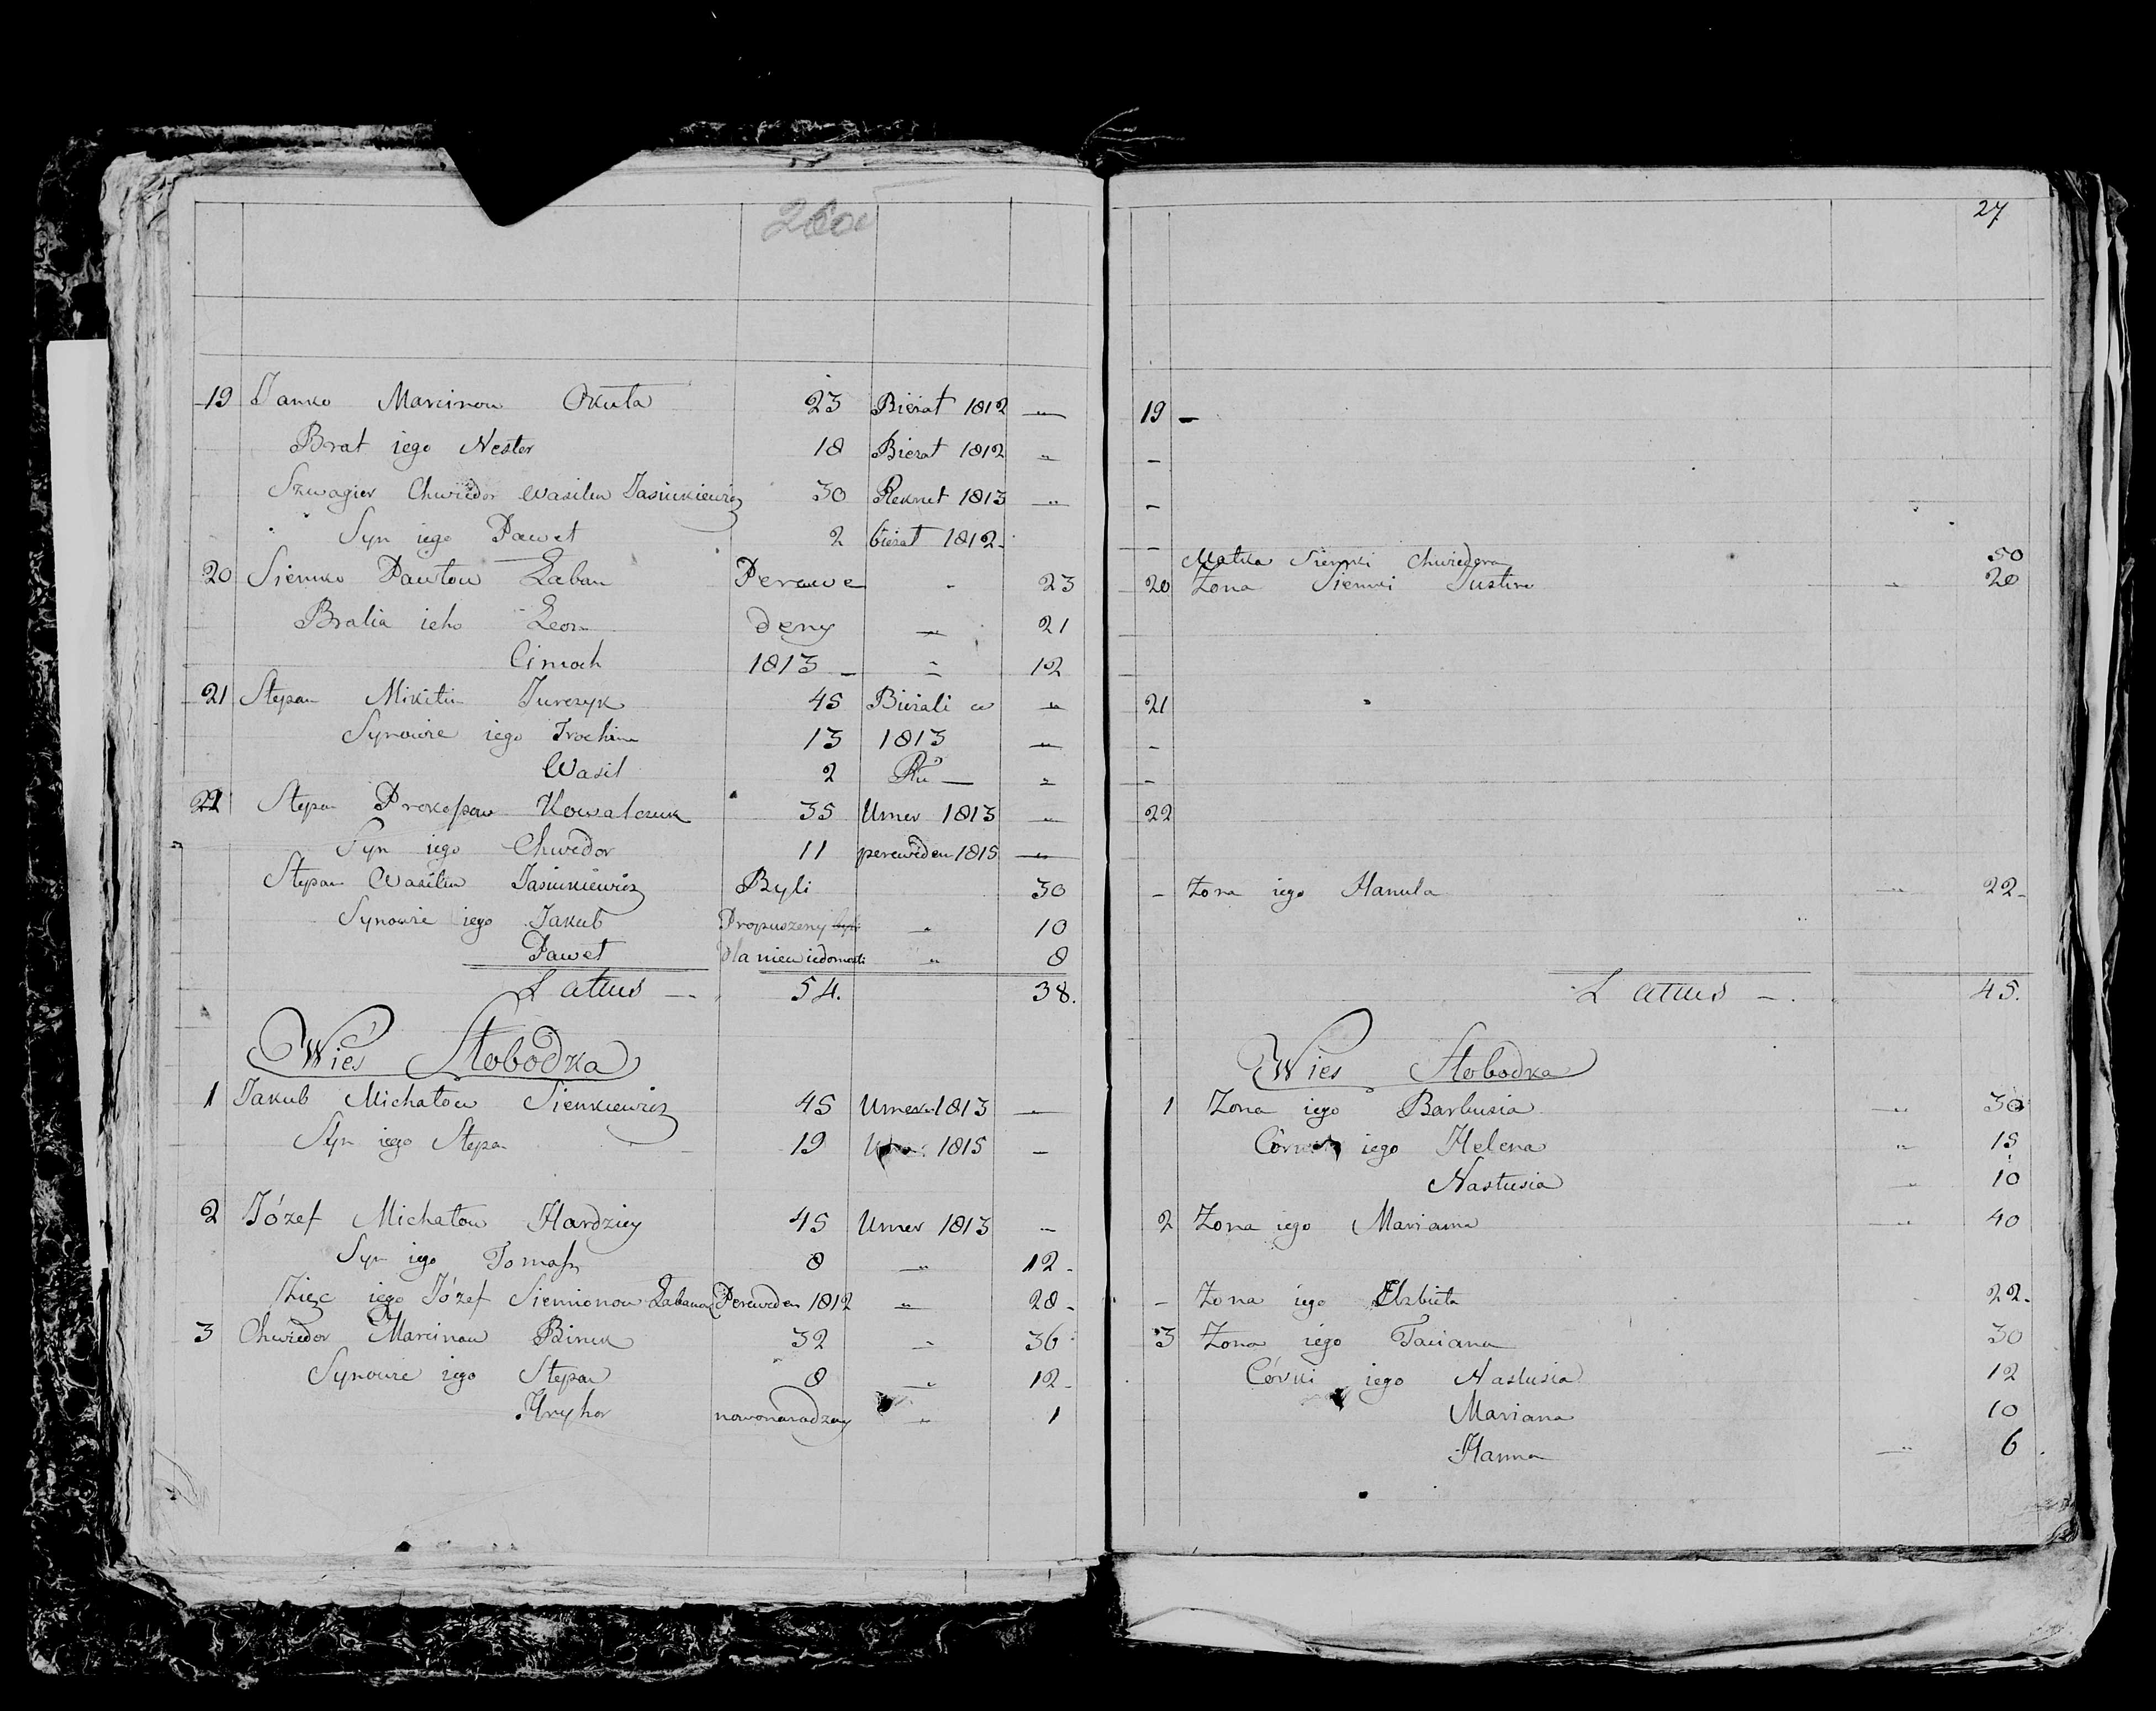 26ob
19 Janko Marcinow Okuła 23 Bieżał 1812 "
Brat iego Nester 18 Bieżał 1812 "
Szwagier Chwiedor Wasilew Jasiukiewicz 30 Rekrut 1813 "
Syn iego Paweł 2 bieżał 1812
20 Siemko Pawłow Łaban Perewe " 23
Bratia ieho Leon deny " 21
Cimoch 1813 " 12
21 Stepan Mikitin Jurczyk 45 Bieżali w "
Synowie iego Trochim 13 1813 "
Wasil 2 Ru "
22 Stepan Prokopow Kowalczuk 35 Umer 1813 "
Syn iego Chwedor 11 pereweden 1815 "
Stepan Wasilew Jasiukiewicz Byli 30
Synowie iego Jakub Propuszeny byli " 10
Paweł dla niewiedomosti " 8
Latus 54. 38.
Wieś Słobodka
1 Jakub Michałow Sienkiewicz 45 Umer 1813 "
Syn iego Stepan 19 1815
2 Józef Michałow Hardziey 45 Umer 1813
Syn iego Tomasz 8 " 12
Zięc iego Józef Siemionow Łabanow Pereweden 1812 " 28
3 Chwiedor Marcinow Binek 32 " 36
Synowie iego Stepan 8 " 12
Hryhor nowonarodzeny " 1
27
19 -
-
-
-
Matka Siemki Chwiedora 50
20 Zona Siemki Justina " 20
21
-
-
22
- Zona iego Hanula " 22
Latus 45.
Wies Słobodka
1 Zona iego Barbusia " 30
Córki iego Helena " 15
Nastusia " 10
2 Zona iego Mariana " 40
- Zona iego Elzbieta 22
3 Zona iego Taciana 30
Córki iego Nastusia 12
Mariana 10
Hanna " 6